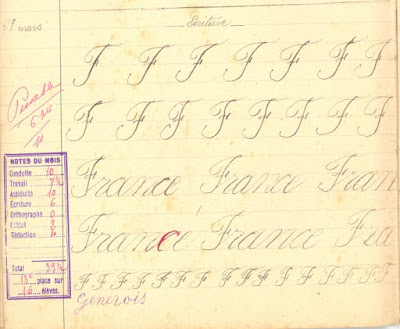 mars
Ecriture
F F F F F F F
Passable
F F F F F F F F
NOTES DU MOIS
Conduite 10
Travail 7½
Assiduité 10
Écriture 6
Orthographe 0
Calcul 2
Rédaction 4
Total 39½
13e place sur
16 élèves.
France France Fran
France France Fra
F F F F F F F F F F F F F F F
Generois